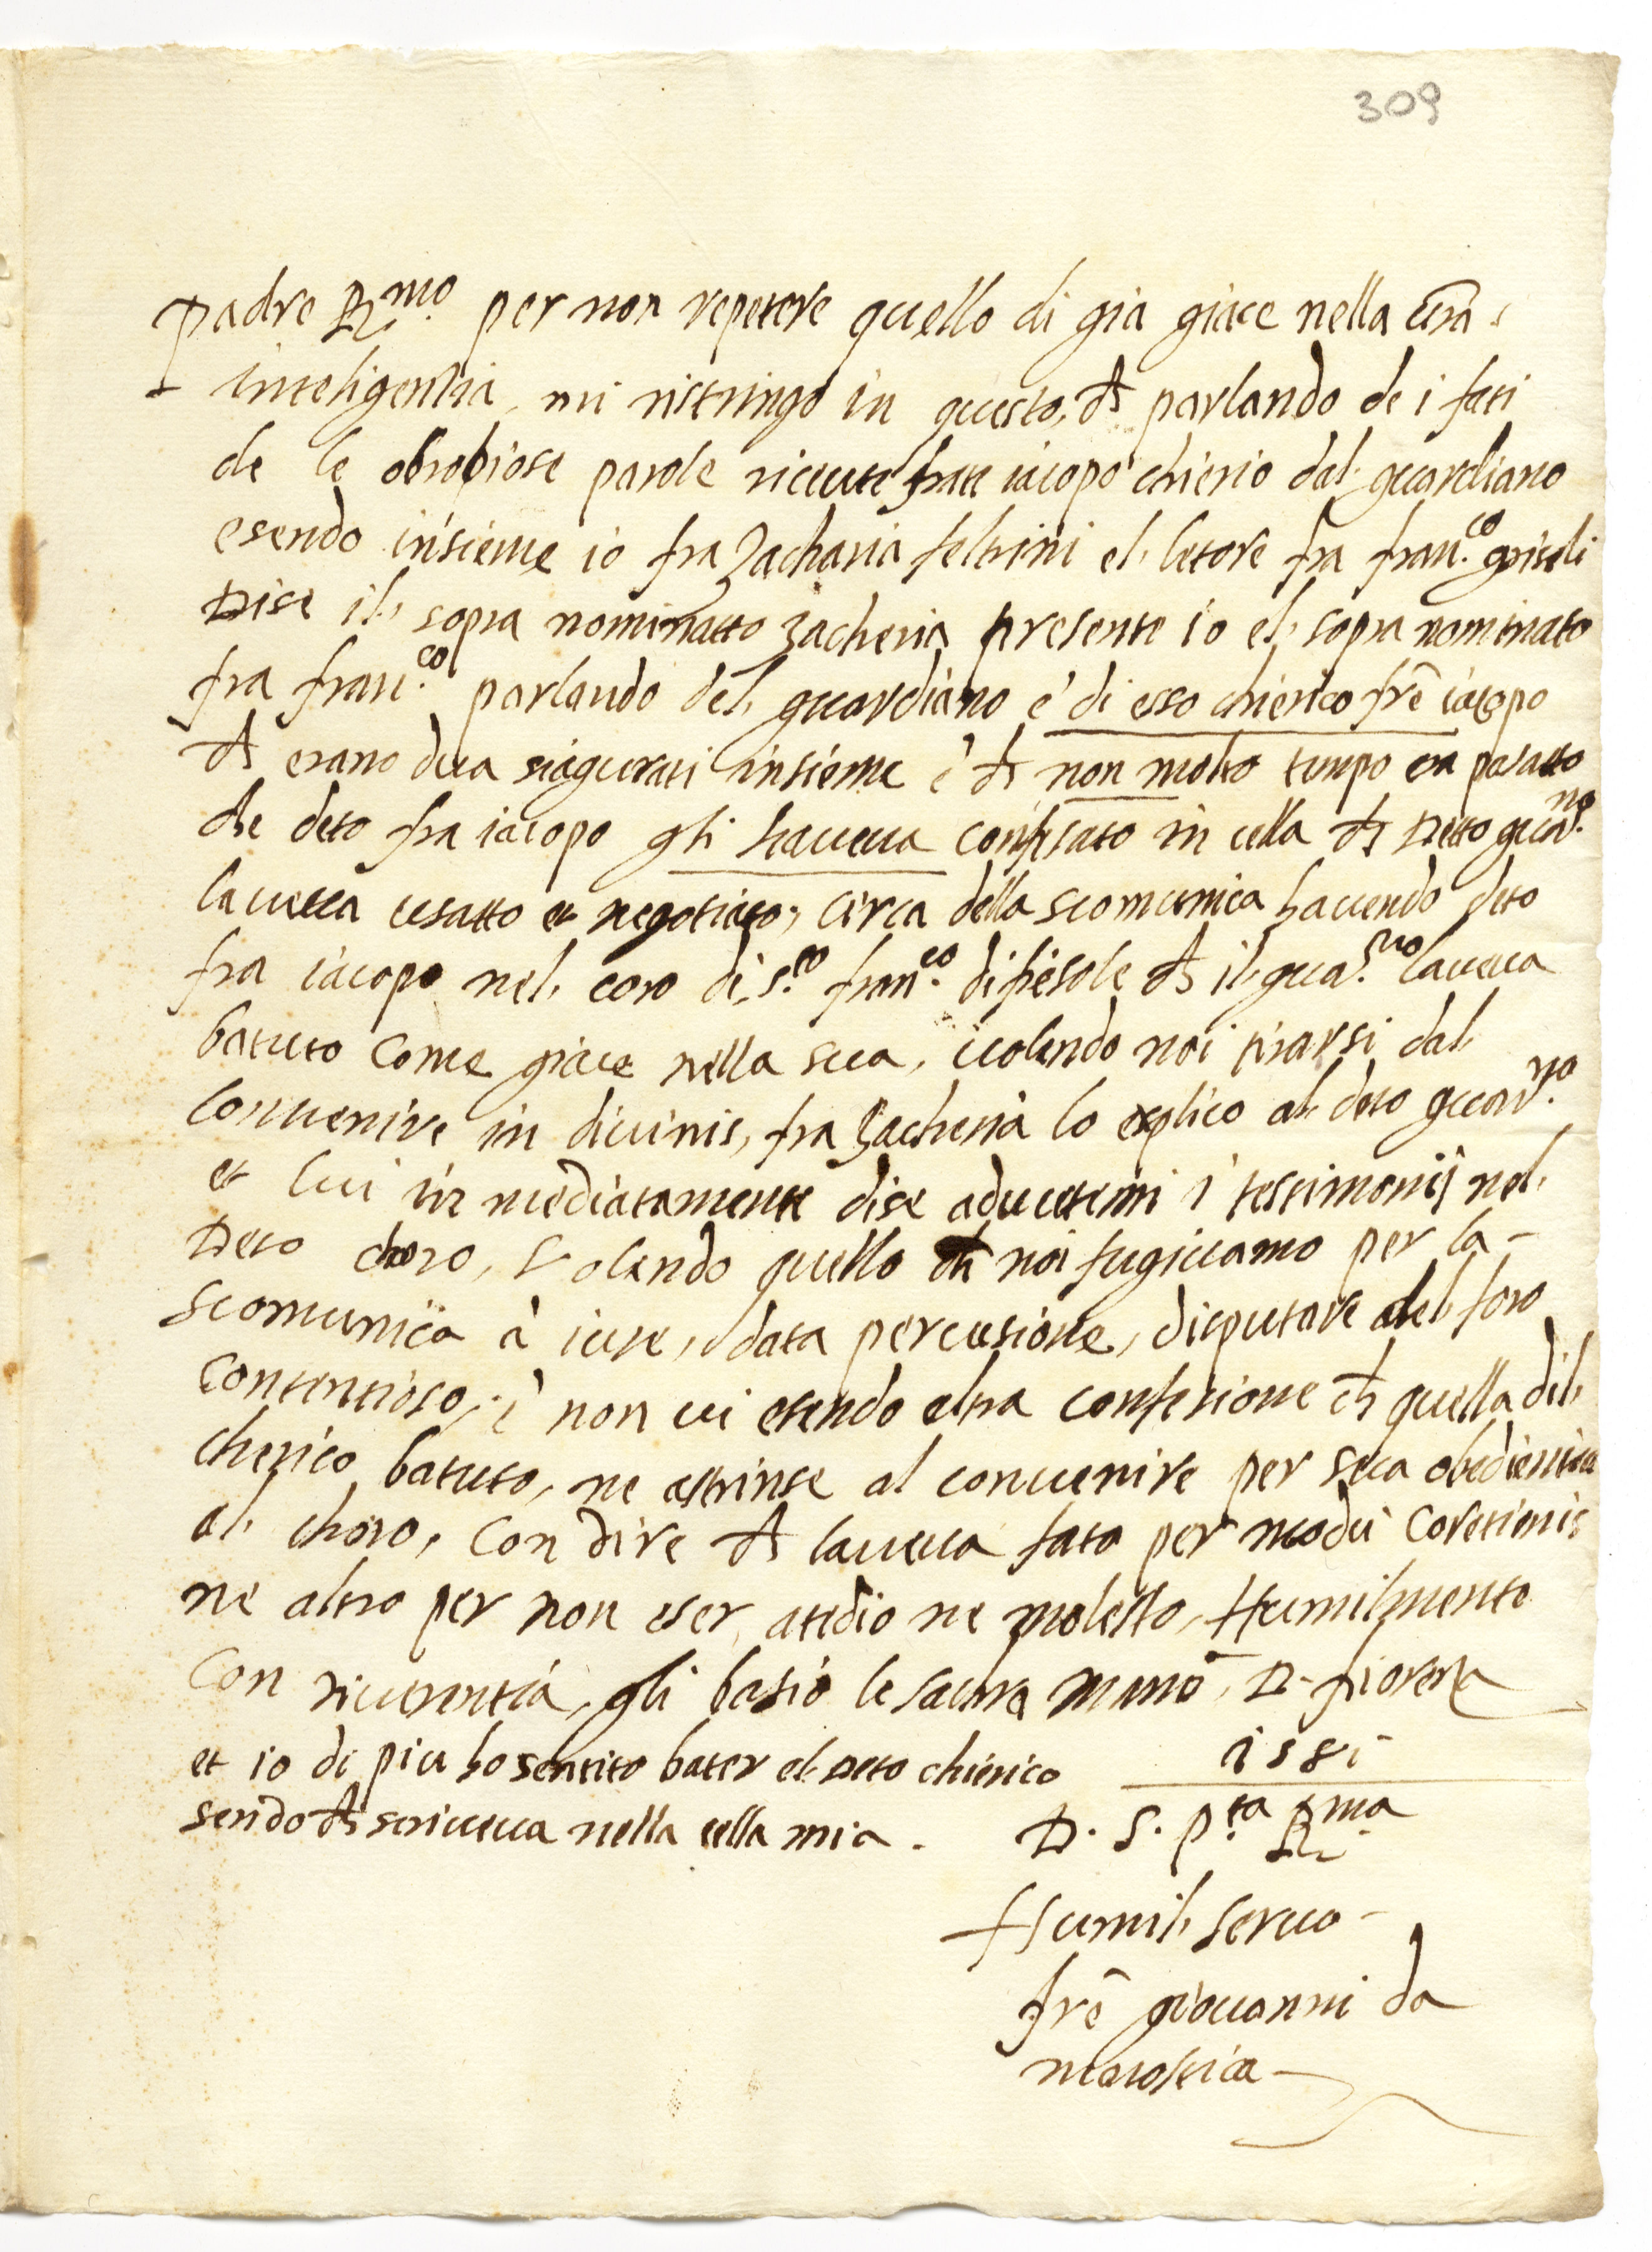 309
Padre R.mo per non repetere quello di gia giace nella vr̃a
inteligentia, mi ristringo in questo, ch̃ parlando de i fati
de le obrobiose parole riceute frate iacopo chierio dal guardiano
esendo insieme io fra Zacharia feltrini el letore fra fran.co griseli
Dise il sopra nominatto Zacheria presente io el sopra nominato
fra fran.co parlando del guardiano e di esso chierico frẽ iacopo
ch̃ erano dua siagurati insieme e ch̃ non molto tempo era pasatto
che deto fra iacopo gli haueua confesato in cella ch̃ Detto guar.no
laueua usatto et negotiato, circa della scomunica hauendo deto
fra iacopo nel coro di s.to fran.co di fiesole ch̃ il guar.no laueua
batuto come giace nella sua, uolendo noi tirarsi dal
conuenire in diuinis, fra Zacheria lo explico al deto guar.no
et lui in mediatamente dise aducetemi i testimonij nel
Deto choro, Volendo quello ch̃ noi fugiuamo per la
scomunica à iure, data percusione, disputare del foro
contentioso, e non ui esendo altra confesione ch̃ quella dil
cherico batuto, ne astrinse al conuenire per sua obedientia
al choro, con dire ch̃ laueua fato per modũ coretionis
ne altro per non eser atedio ne molesto, Humilmente
con riuerentia, gli basio le sacra mano, D. fiorenza
et io di piu ho sentito bater el Deto chierico
1581
sendo ch̃ scriueua nella cella mia.
D. S. P.ta R.ma
Humil seruo
frẽ giouanni da
marostica